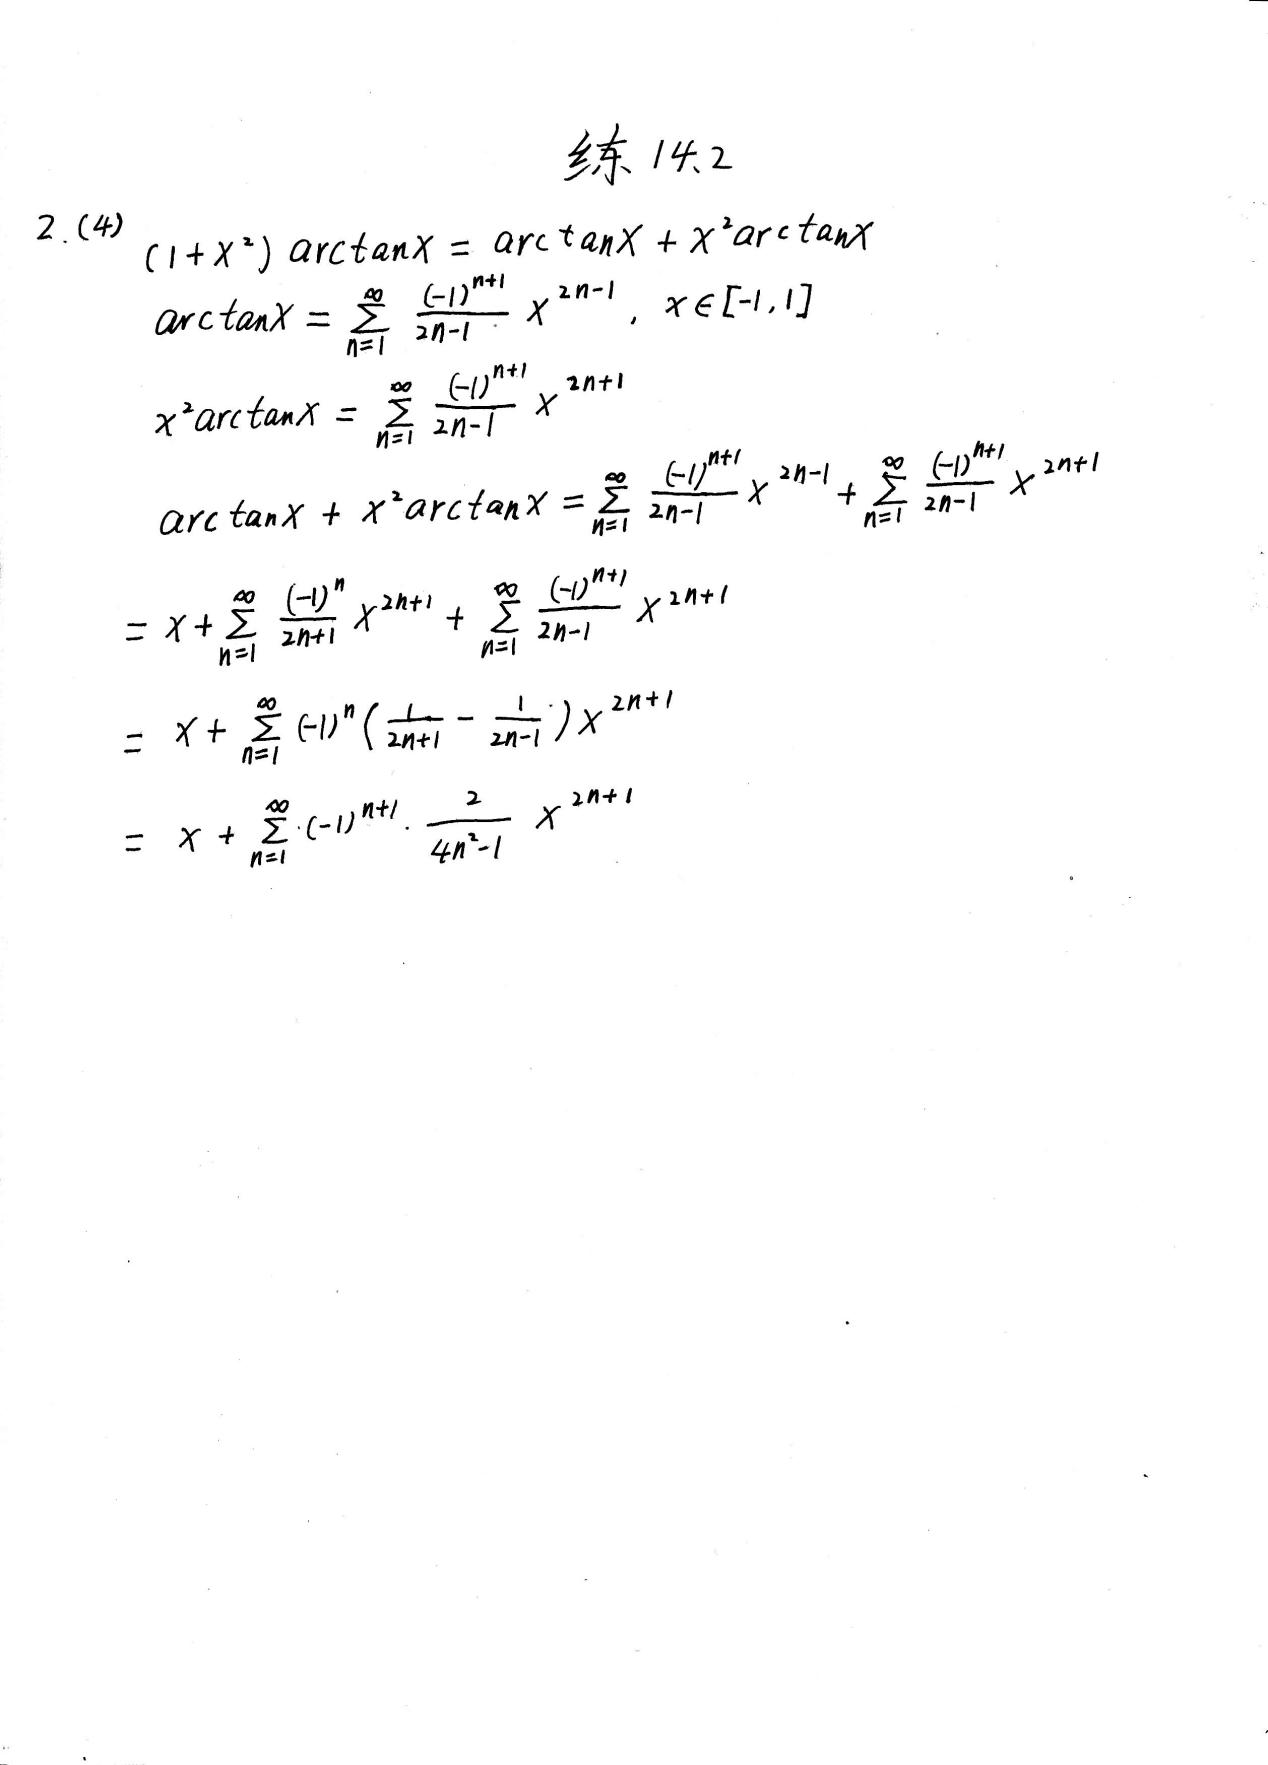 练 14.2
2.(4) (1+x²) arctanx = arctanx + x²arctanx
arctanx = ∑_{n=1}^{∞} \frac{(-1)^{n+1}}{2n-1} x^{2n-1}, x∈[-1,1]
x²arctanx = ∑_{n=1}^{∞} \frac{(-1)^{n+1}}{2n-1} x^{2n+1}
arctanx + x²arctanx = ∑_{n=1}^{∞} \frac{(-1)^{n+1}}{2n-1} x^{2n-1} + ∑_{n=1}^{∞} \frac{(-1)^{n+1}}{2n-1} x^{2n+1}
= x + ∑_{n=1}^{∞} \frac{(-1)^{n}}{2n+1} x^{2n+1} + ∑_{n=1}^{∞} \frac{(-1)^{n+1}}{2n-1} x^{2n+1}
= x + ∑_{n=1}^{∞} (-1)^{n} (\frac{1}{2n+1} - \frac{1}{2n-1}) x^{2n+1}
= x + ∑_{n=1}^{∞} (-1)^{n+1} · \frac{2}{4n²-1} x^{2n+1}